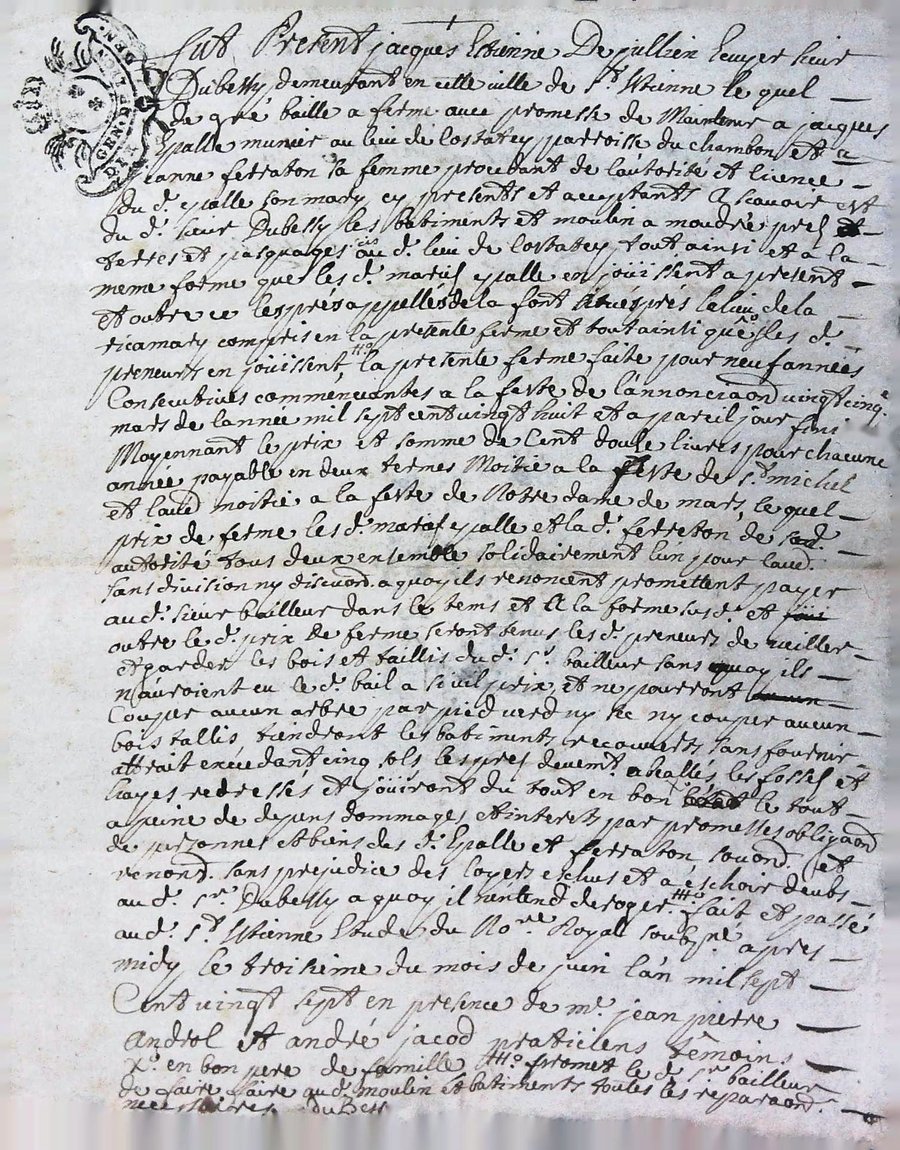 GEN. DE LYON
DIX DEN.
Fut Present jacques Etienne De jullien Ecuyer sieur
Dubessy demeurant en cette ville de St. Etienne le quel
De gré baille a ferme avec promesse de Maintenir a jacques
Epalle munier au lieu de Costatey parroisse du chambon et a
janne ferraton sa femme procedant de l'autorité et licence
du d. epalle son mary cy presents et acceptants A scavoir est
du d. sieur Dubessy les batiments et moulin a moudre pres
terres et pasquages au d. lieu de Costatey tout ainsi et a la
meme forme que les d. mariés epalle en joüissent a present
et outre ce les prés appellés de la font situés prés le lieu de la
ricamary compris en la presente ferme et tout ainsi que les d.
preneurs en joüissent, la presente ferme faite pour neuf années
Consecutives commencantes a la feste de l'annonciaon vingt cinq
mars de l'année mil sept cent vingt huit et a pareil jour fini
Moyennant le prix et somme de Cent douse livres pour chacune
année payable en deux termes Moitié a la feste de St. michel
et l'aud. moitié a la feste de Notre dame de mars, le quel
prix de ferme les d. mariés epalle et la d. ferraton de sad.
autorité tous deux ensemble solidairement l'un pour l'aud.
sans division ny discuon. a quoy ils renoncent promettent payer
au d. sieur bailleur dans le tems et A la forme sus d. et
outre le d. prix de ferme seront tenus les d. preneurs de veiller
et garder les bois et taillis du d. sr. bailleur sans quoy ils
n'auroient eu le d. bail a si vil prix, et ne pourront
Couper aucun arbre par pied verd ny sec ny couper aucun
bois tallis tiendront les batiments recouverts sans fournir
attrait excedant cinq sols les prés devemt. abeallés les fossés et
hayes redressés et joüiront du tout en bon le tout
a peine de depans dommages et interets par promesses obligaon
de personnes et biens des d. Epalle et ferraton, souon. et
renond. sans prejudice des loyers eschus et a eschoir deubs
au d. sr. Dubessy a quoy il n'entend deroger. fait et passé
au d. St. Etienne Etude du Nore. Royal soubsné. apres
midy le troisieme du mois de juin l'an mil sept
Cent vingt sept en presence de me. jean pierre
Androl et andré jacod praticiens temoins
Xo. en bon pere de famille promet le d. sr. bailleur
de faire faire au d. moulin et batiments toutes les reparaons.
necessaires. duBess